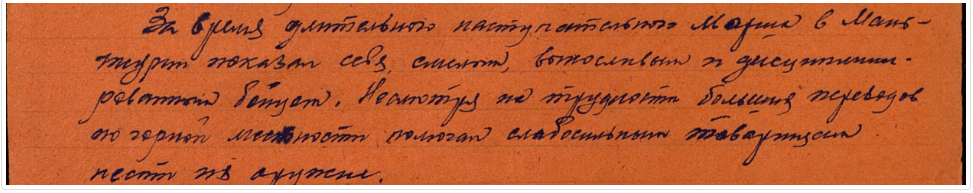 За время длительного наступательного марша в Мань-
чжурии показал себя, смелым, выносливым и дисциплини-
рованным бойцом. Несмотря на трудности больших переходов
по горной местности помогал слабосильным товарищам
нести их оружие.